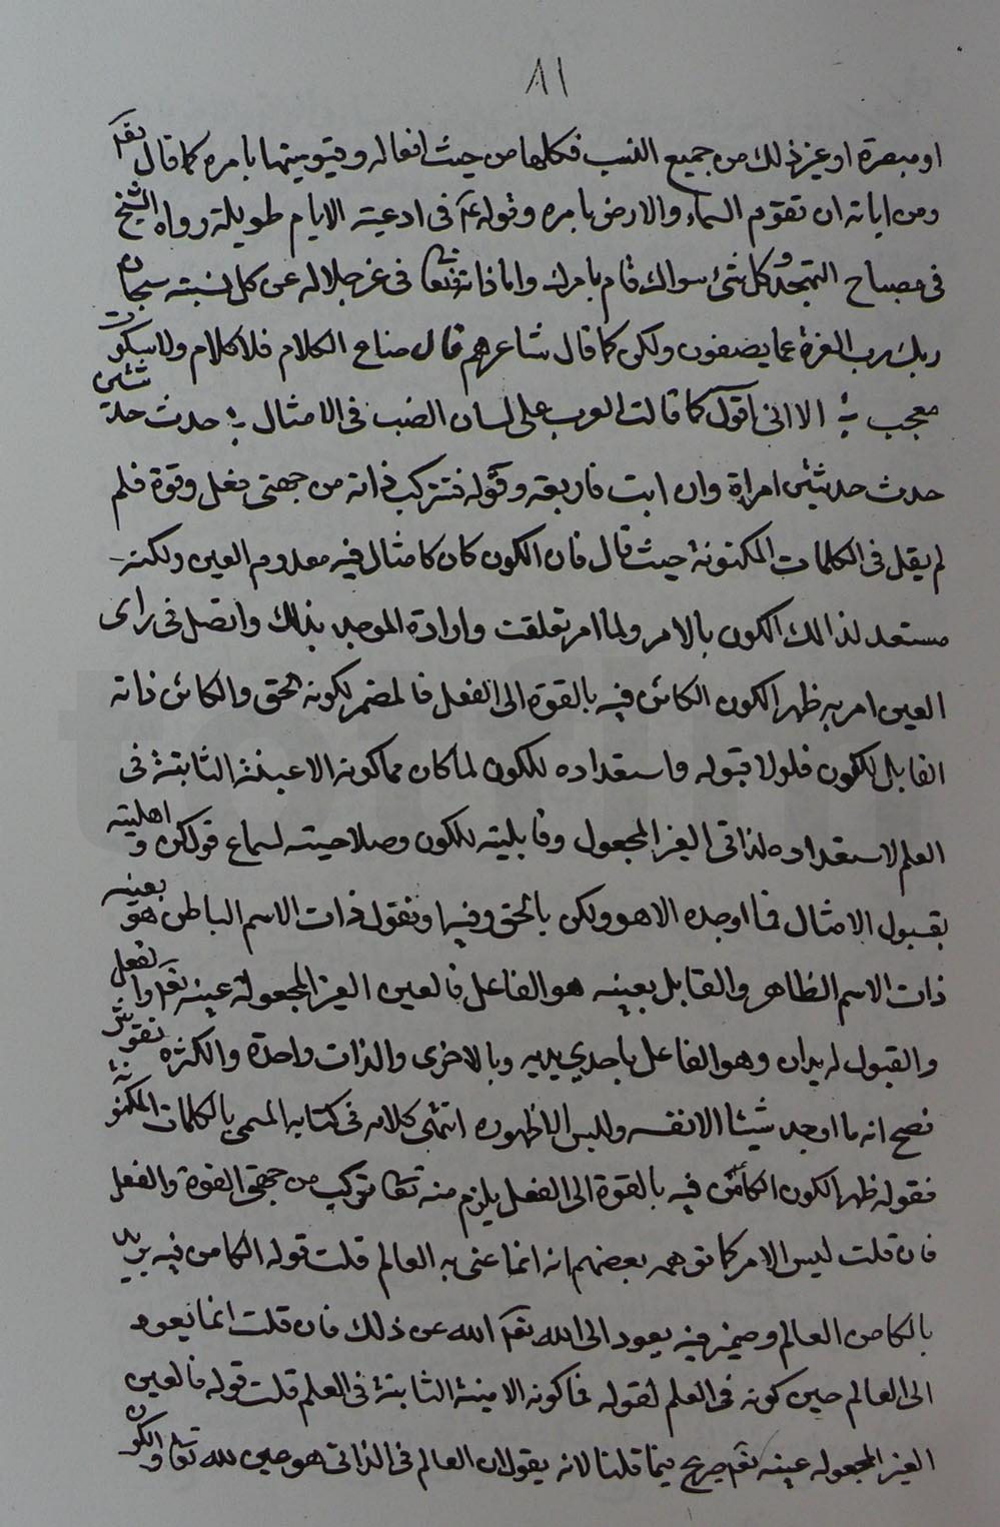 ٨١
او مبصرة او غيز ذلك من جميع النسب فكلها من حيث افعاله وقيوميتها بامره كما قال تعم
ومن اياته ان تقوم السماء والارض بامره وقوله ع في ادعية الايام طويلة رواه الشيخ
في مصباح المتهجد وكل شئ سواك قام بامرك واما ذاته تعا فى عز جلاله عن كل نسبته سبحان
ربك رب العزة عما يصفون ولكن كما قال شاعرهم قال ضاع الكلام فلا كلام ولا سكوت
معجب الا انى اقول كما قالت العرب على لسان الضب فى الامثال حدث حديثين
حدث حديثين امراة وان ابت فاربعه وقوله فتتركب ذاته من جهتى فعل وقوة فلم
لم يقل فى الكلمات المكنونة حيث قال فان الكون كان كامنا فيه معدوم العين ولكنه
مستعد لذالك الكون بالامر ولما امر تعلقت وارادة الموجد بذلك واتصل فى راى
العين امر به ظهر الكون الكامن فيه بالقوة الى الفعل فالمضمر لكونه الحق والكائن ذاته
القابل للكون فلولا قبوله واستعداده للكون لما كان فما كونه الا عينه الثابتة فى
العلم لاستعداده الذاتى الغيز المجعول وقابليته للكون وصلاحيته لسماع قول كن واهليته
بقبول الامتثال فما اوجده الا هو ولكن بالحق وفيه او نقول ذات الاسم الباطن هو بعينه
ذات الاسم الظاهر والقابل بعينه هو الفاعل فالعين الغيز المجعولة عينه تعم والفعل
والقبول له يدان وهو الفاعل باحدي يديه وبالاخرى والذات واحدة والكثرة نقوش
فصح انه ما اوجد شيئا الا نفسه وليس الا ظهوره انتهى كلامه فى كتابه المسمى بالكلمات المكنونة
فقوله ظهر الكون الكامن فيه بالقوة الى الفعل يلزم منه تعا تركيب من جهتى القوة والفعل
فان قلت ليس الامر كما توهمه بعضهم انه انما عنى به العالم قلت قوله الكامن فيه يريد
بالكامن العالم وضميز فيه يعود الى الله تعم الله عن ذلك فان قلت انما يعود
الى العالم حين كونه فى العلم لقوله فما كونه الا عينه الثابتة فى العلم قلت قوله فالعين
الغيز المجعوله عينه تعم صريح فيما قلنا لانه يقول ان العالم فى الذاتى هو عين الله تعا والكون